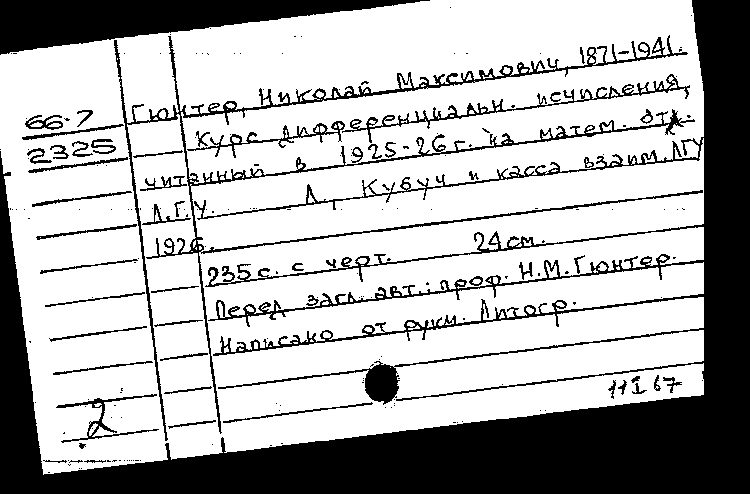 Гюнтер, Николай Максимович, 1871-1941.
66-7 Курс дифференциальн. исчисления,
2325 читанный в 1925-26 г. на матем. отд.
Л.Г.У. Л., Кубуч и касса взаим. ЛГУ
1926.
235 с. с черт. 24 см.
Перед загл. авт.: проф. Н.М. Гюнтер.
Написано от рукм. Литогр.
2
11 I 67